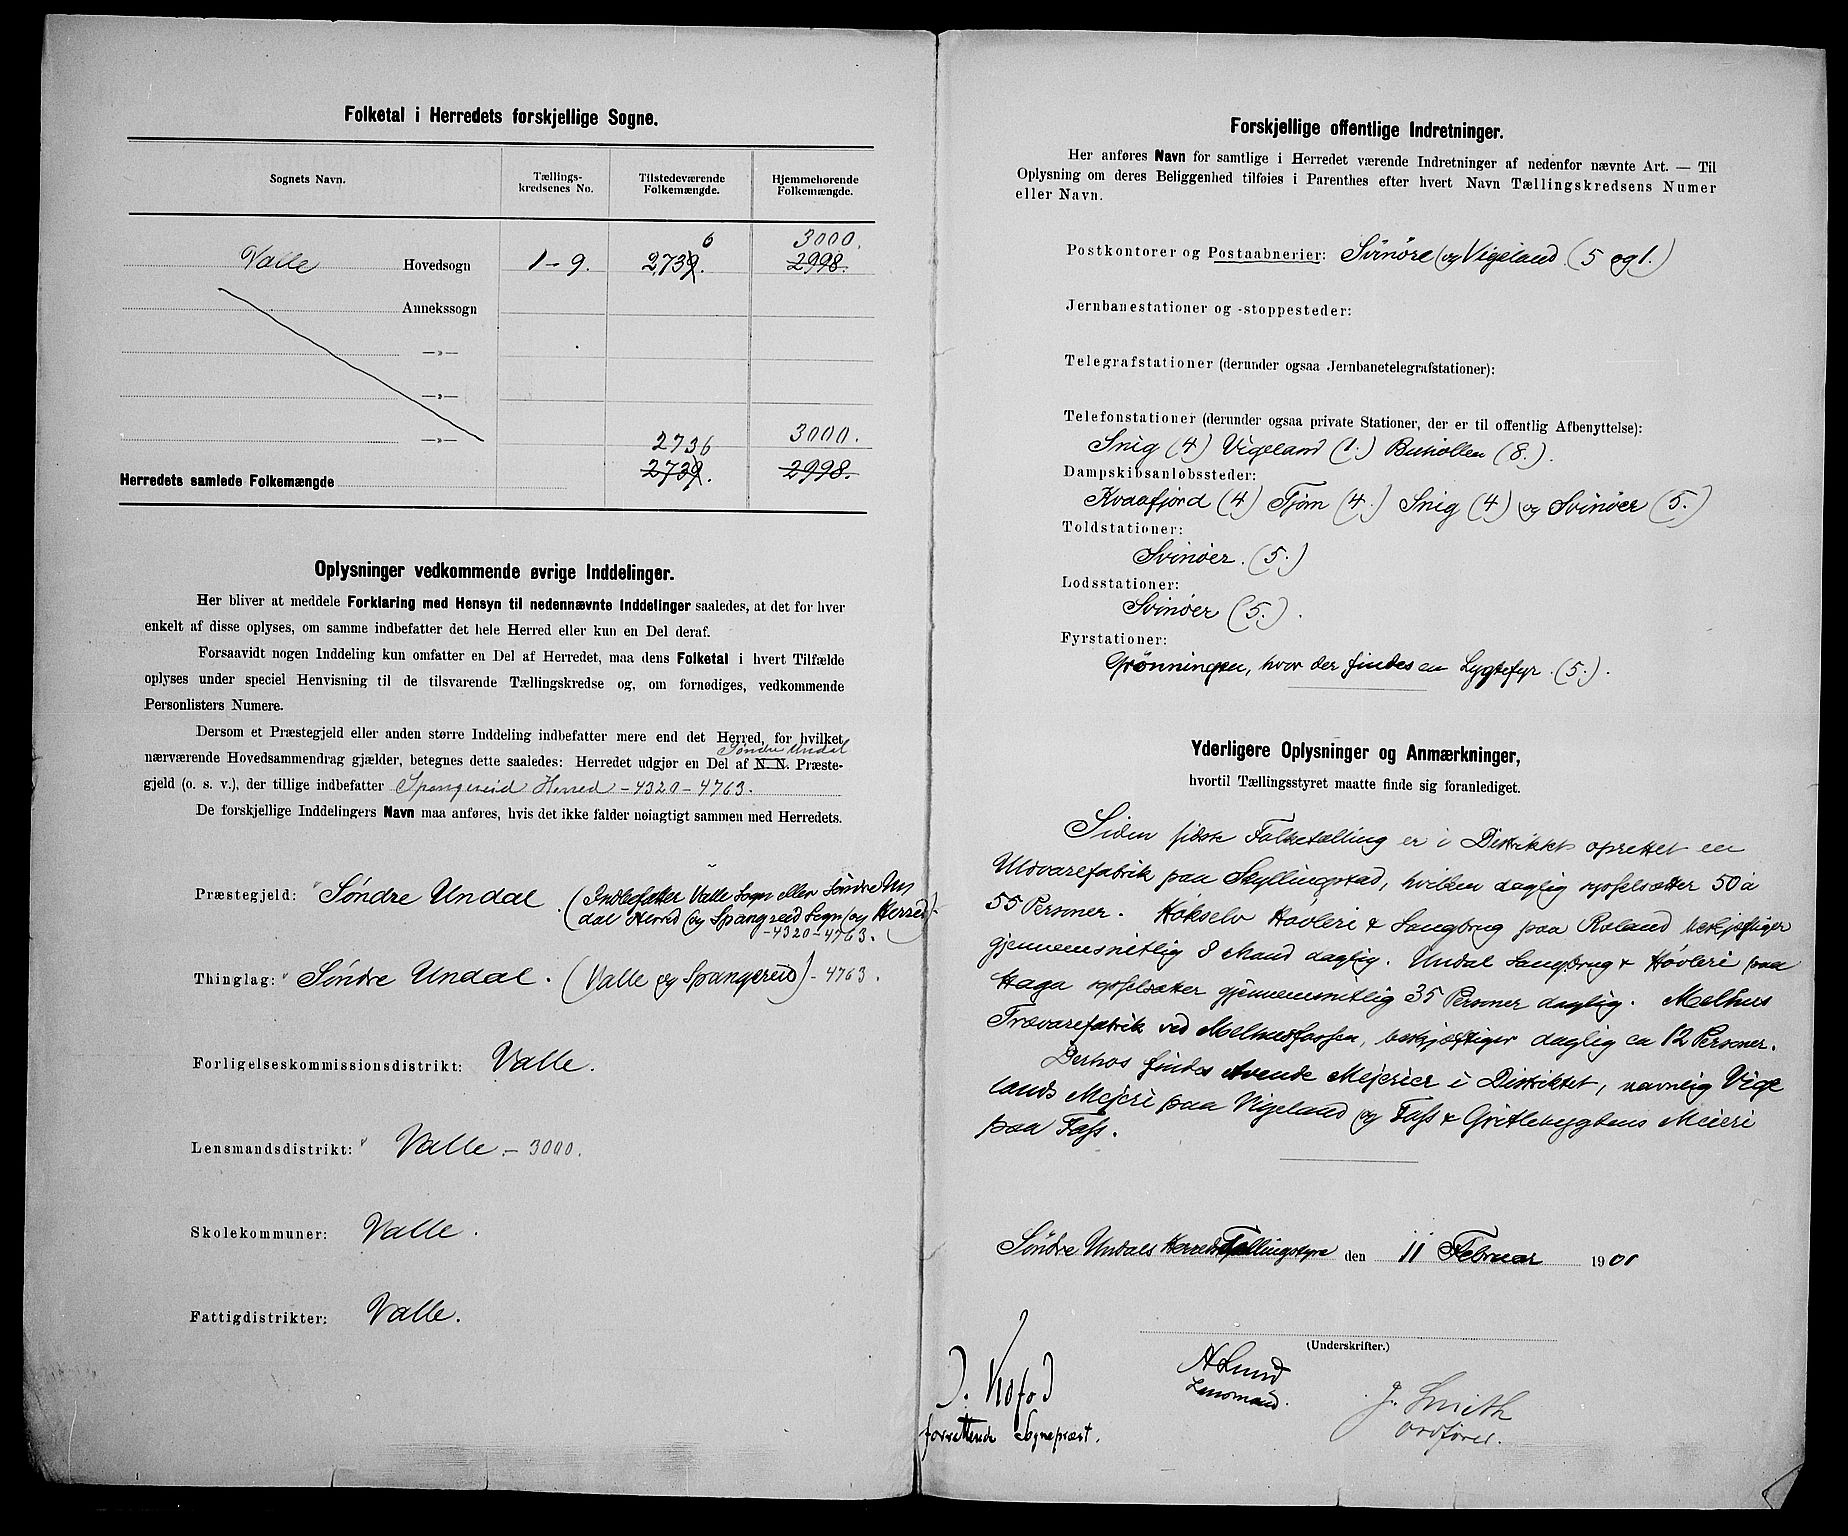 Folketal i Herredets forskjellige Sogne.
Sognets Navn.
Tællings-
kredsenes No.
Tilstedeværende
Folkemængde.
Hjemmehørende
Folkemængde.
6
3000.
Valle Hovedsogn 1-9. 2739. 2998.
Annekssogn
—»—
—»—
—»— 2736 3000.
Herredets samlede Folkemængde 2739. 2998.
Oplysninger vedkommende øvrige Inddelinger.
Her bliver at meddele Forklaring med Hensyn til nedennævnte Inddelinger saaledes, at det for hver
enkelt af disse oplyses, om samme indbefatter det hele Herred eller kun en Del deraf.
Forsaavidt nogen Inddeling kun omfatter en Del af Herredet, maa dens Folketal i hvert Tilfælde
oplyses under speciel Henvisning til de tilsvarende Tællingskredse og, om fornødiges, vedkommende
Personlisters Numere.
Dersom et Præstegjeld eller anden større Inddeling indbefatter mere end det Herred, for hvilket
Søndre Undal
nærværende Hovedsammendrag gjælder, betegnes dette saaledes: Herredet udgjør en Del af N. N. Præste-
gjeld (o. s. v.), der tillige indbefatter Spangereid Herred - 4320 - 4763.
De forskjellige Inddelingers Navn maa anføres, hvis det ikke falder nøiagtigt sammen med Herredets.
Præstegjeld: Søndre Undal. (Indbefatter Valle Sogn eller Søndre Un
dal Herred og Spangereid Sogn og Herred)-
-4320-4763.
Thinglag: Søndre Undal. (Valle og Spangereid) - 4763.
Forligelseskommissionsdistrikt: Valle.
Lensmandsdistrikt: Valle. - 3000.
Skolekommuner: Valle.
Fattigdistrikter: Valle.
Forskjellige offentlige Indretninger.
Her anføres Navn for samtlige i Herredet værende Indretninger af nedenfor nævnte Art. — Til
Oplysning om deres Beliggenhed tilføies i Parenthes efter hvert Navn Tællingskredsens Numer
eller Navn.
Postkontorer og Postaabnerier: Svinöre og Vigeland (5 og 1.)
Jernbanestationer og -stoppesteder:
Telegrafstationer (derunder ogsaa Jernbanetelegrafstationer):
Telefonstationer (derunder ogsaa private Stationer, der er til offentlig Afbenyttelse):
Snig (4) Vigeland (1.) Buhollen (8.).
Dampskibsanløbssteder:
Kvaafjord (4) Tjørn (4.) Snig (4) og Svinöer (5.)
Toldstationer:
Svinöer. (5.)
Lodsstationer:
Svinöer (5.).
Fyrstationer:
Grönningen, hvor der findes en Lygtefyr. (5.).
Yderligere Oplysninger og Anmærkninger,
hvortil Tællingsstyret maatte finde sig foranlediget.
Siden sidste Folketælling er i Distriktet oprettet en
Uldvarefabrik paa Skyllingstad, hvilken daglig sysselsætter 50 à
55 Personer. Høkselv Høvleri & Saugbrug paa Roland beskjæftiger
gjennemsnitlig 8 Mand daglig. Undal Saugbrug & Høvleri paa
Haga sysselsætter gjennemsnitlig 35 Personer daglig. Melhus
Trævarefabrik ved Melhusfossen, beskjæftiger daglig ca 12 Personer.
Derhos findes tvende Mejerier i Distriktet, navnlig Vige
lands Mejeri paa Vigeland og Foss & Gritlebygdens Meieri
paa Foss.
Søndre Undals Herreds Tællingsstyre den 11 Februar 1901
(Underskrifter.)
J. Kofod
forrettende Sogneprest.
A Lund
Lensmand.
J. Smith
Ordfører.